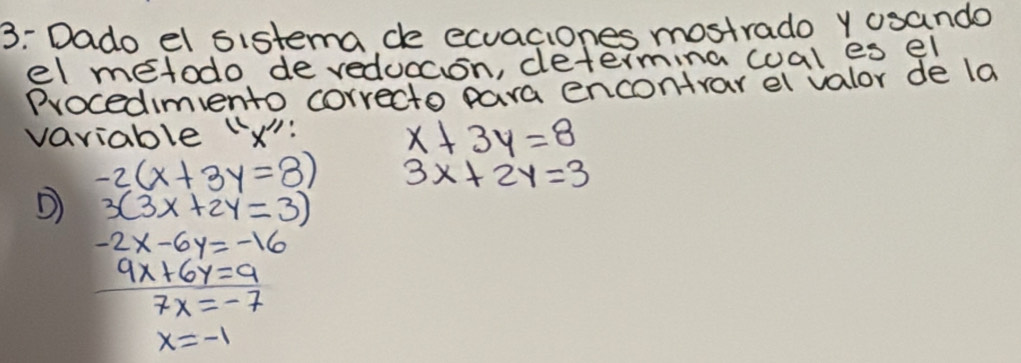 3.- Dado el sistema de ecuaciones mostrado y usando
el método de reducción, determina cual es el
Procedimiento correcto para encontrar el valor de la
variable "x":
x + 3y = 8
3x + 2y = 3
-2(x + 3y = 8)
D) 3(3x + 2y = 3)
-2x - 6y = -16
9x + 6y = 9
7x = -7
x = -1